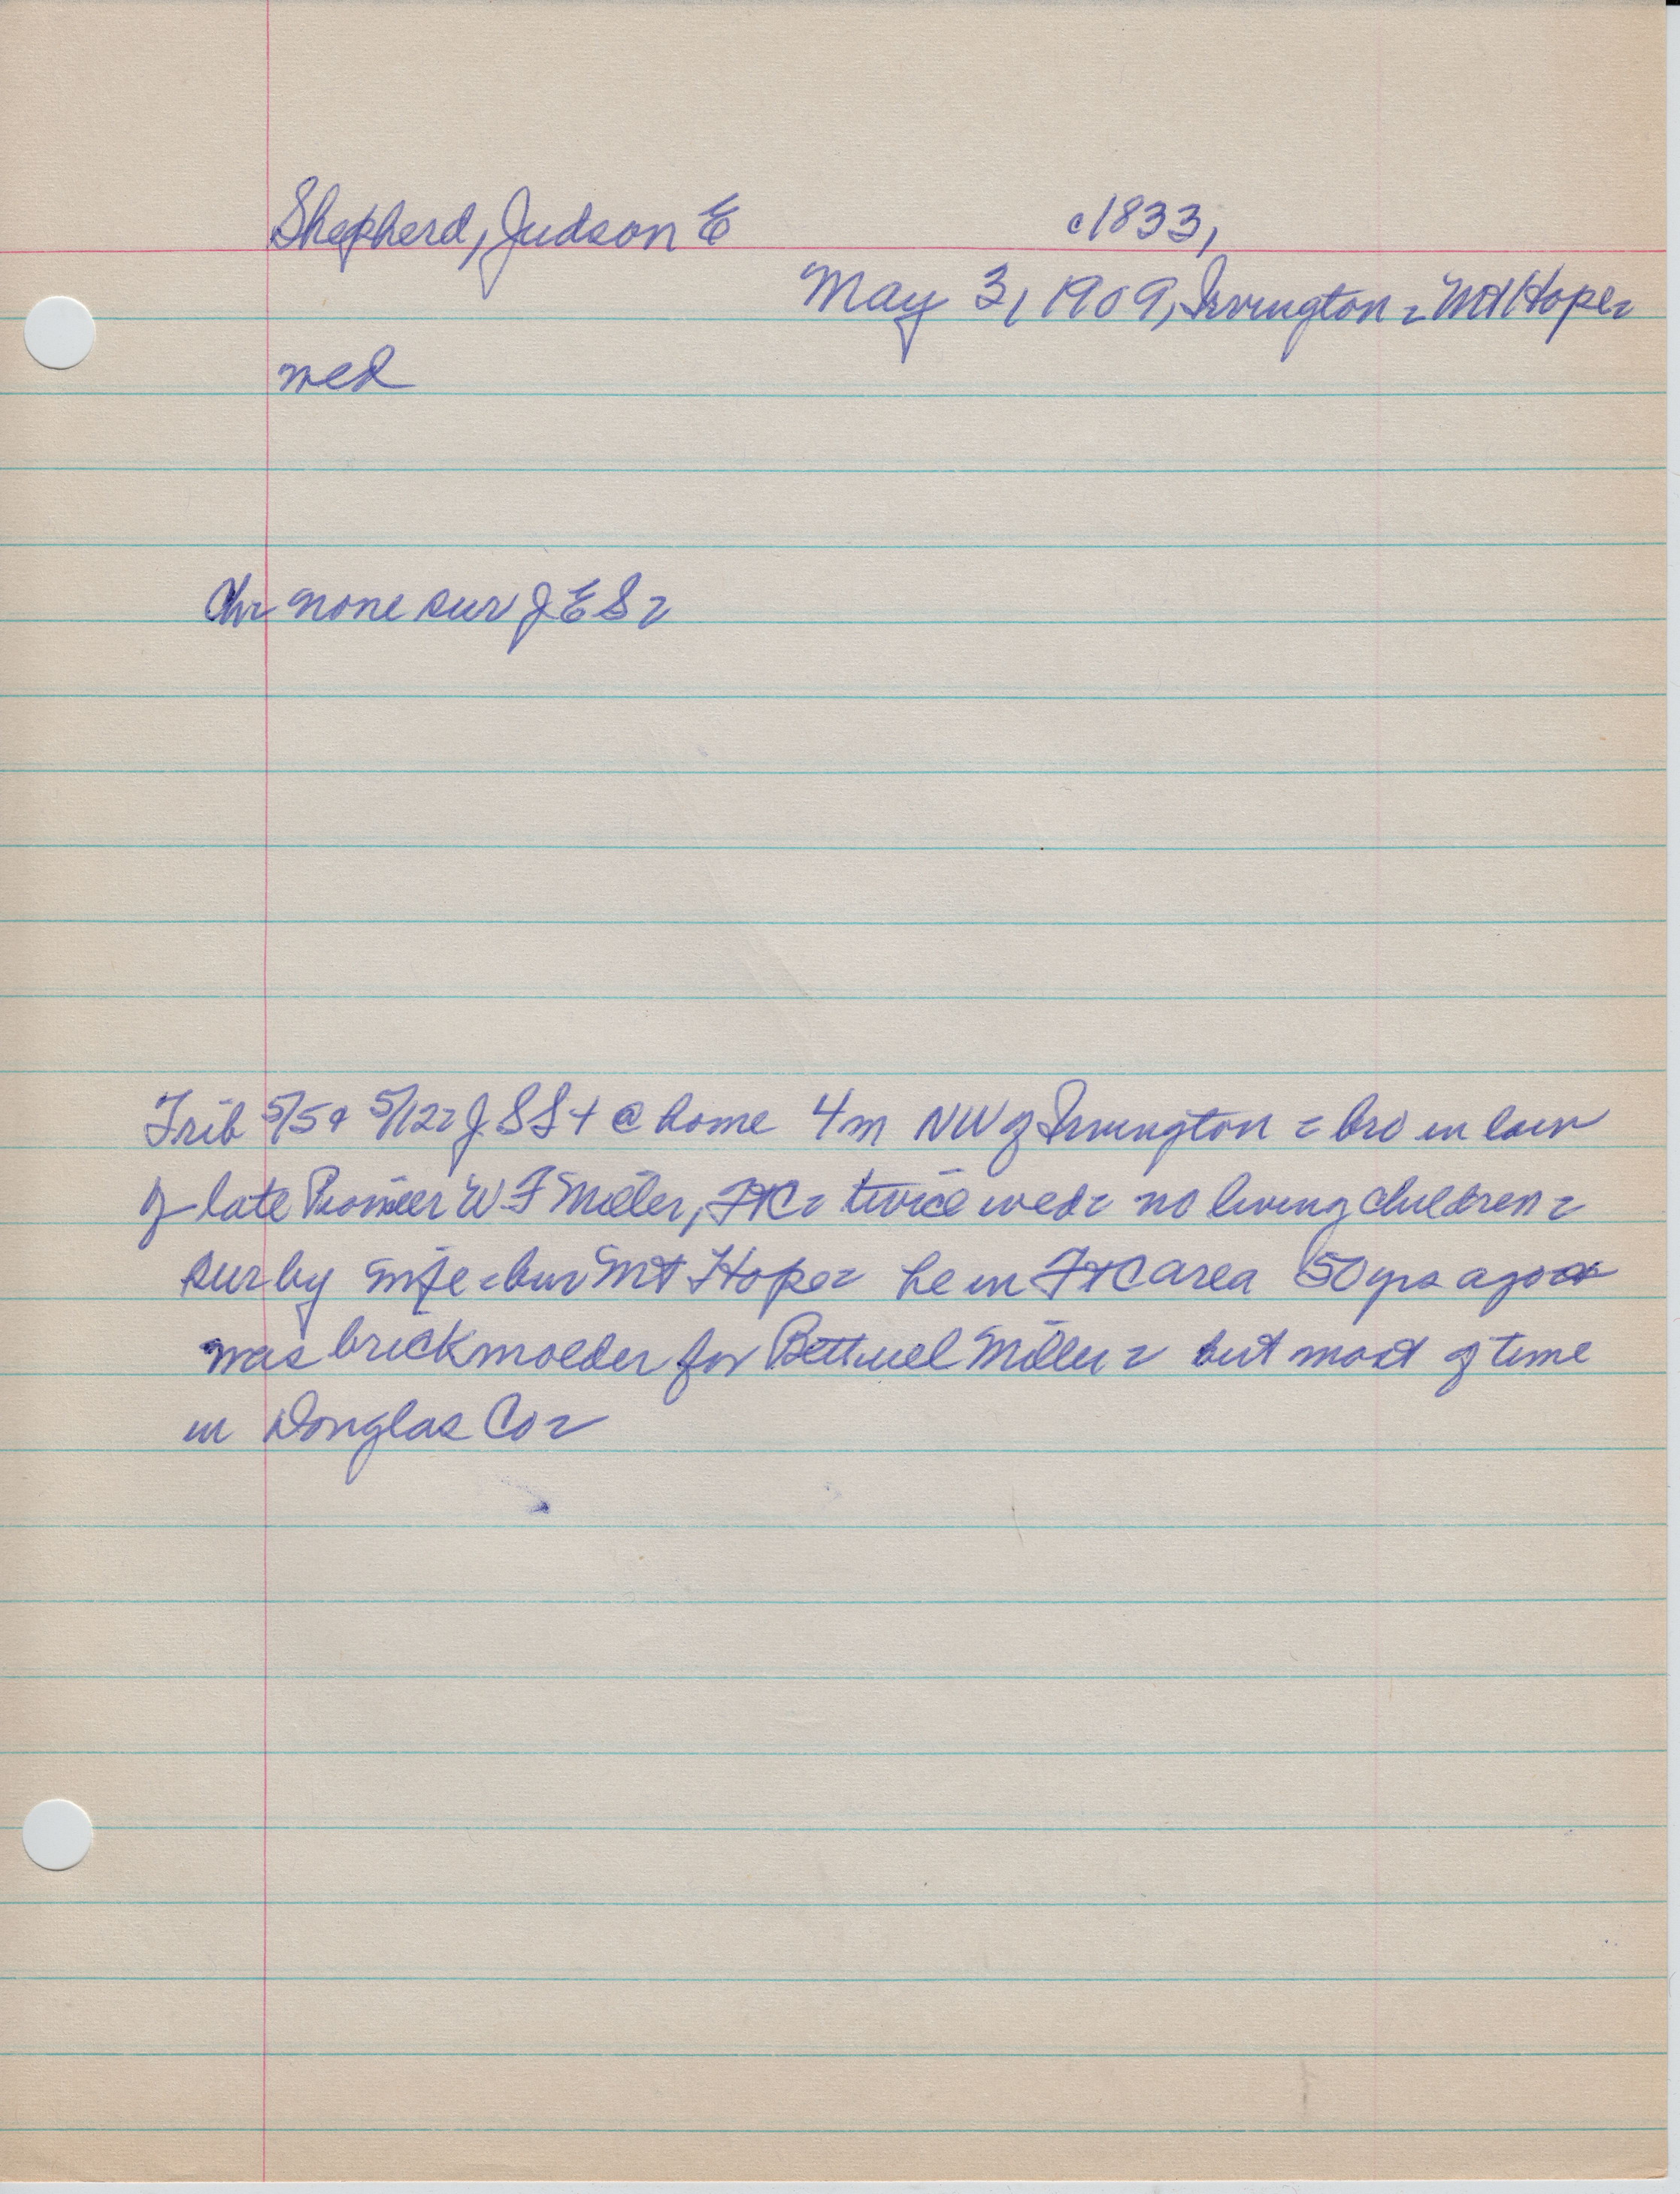 Shepherd, Judson E c1833,
May 3, 1909, Irvington = Mt Hope=
wed
Chr none sur J E S =
Trib 5/5 & 5/12= J S S + @ home 4m NW of Irvington = bro in law
of late Pioneer W F Miller, FtC = twice wed = no living children =
sur by wife = bur Mt Hope = he in FtC area 50 yrs ago
was brickmolder for Bethuel Miller = but most of time
in Douglas Co =